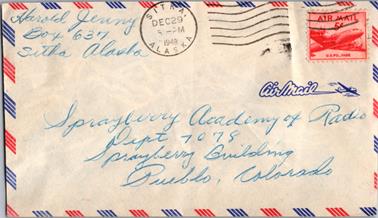 Harold Jenny
Box 637
Sitka Alaska
SITKA
DEC 29
PM
1948
ALASKA
AIR MAIL
U.S. POSTAGE
Air Mail
Sprayberry Academy of Radio
Dept 7078
Sprayberry Building
Pueblo, Colorado